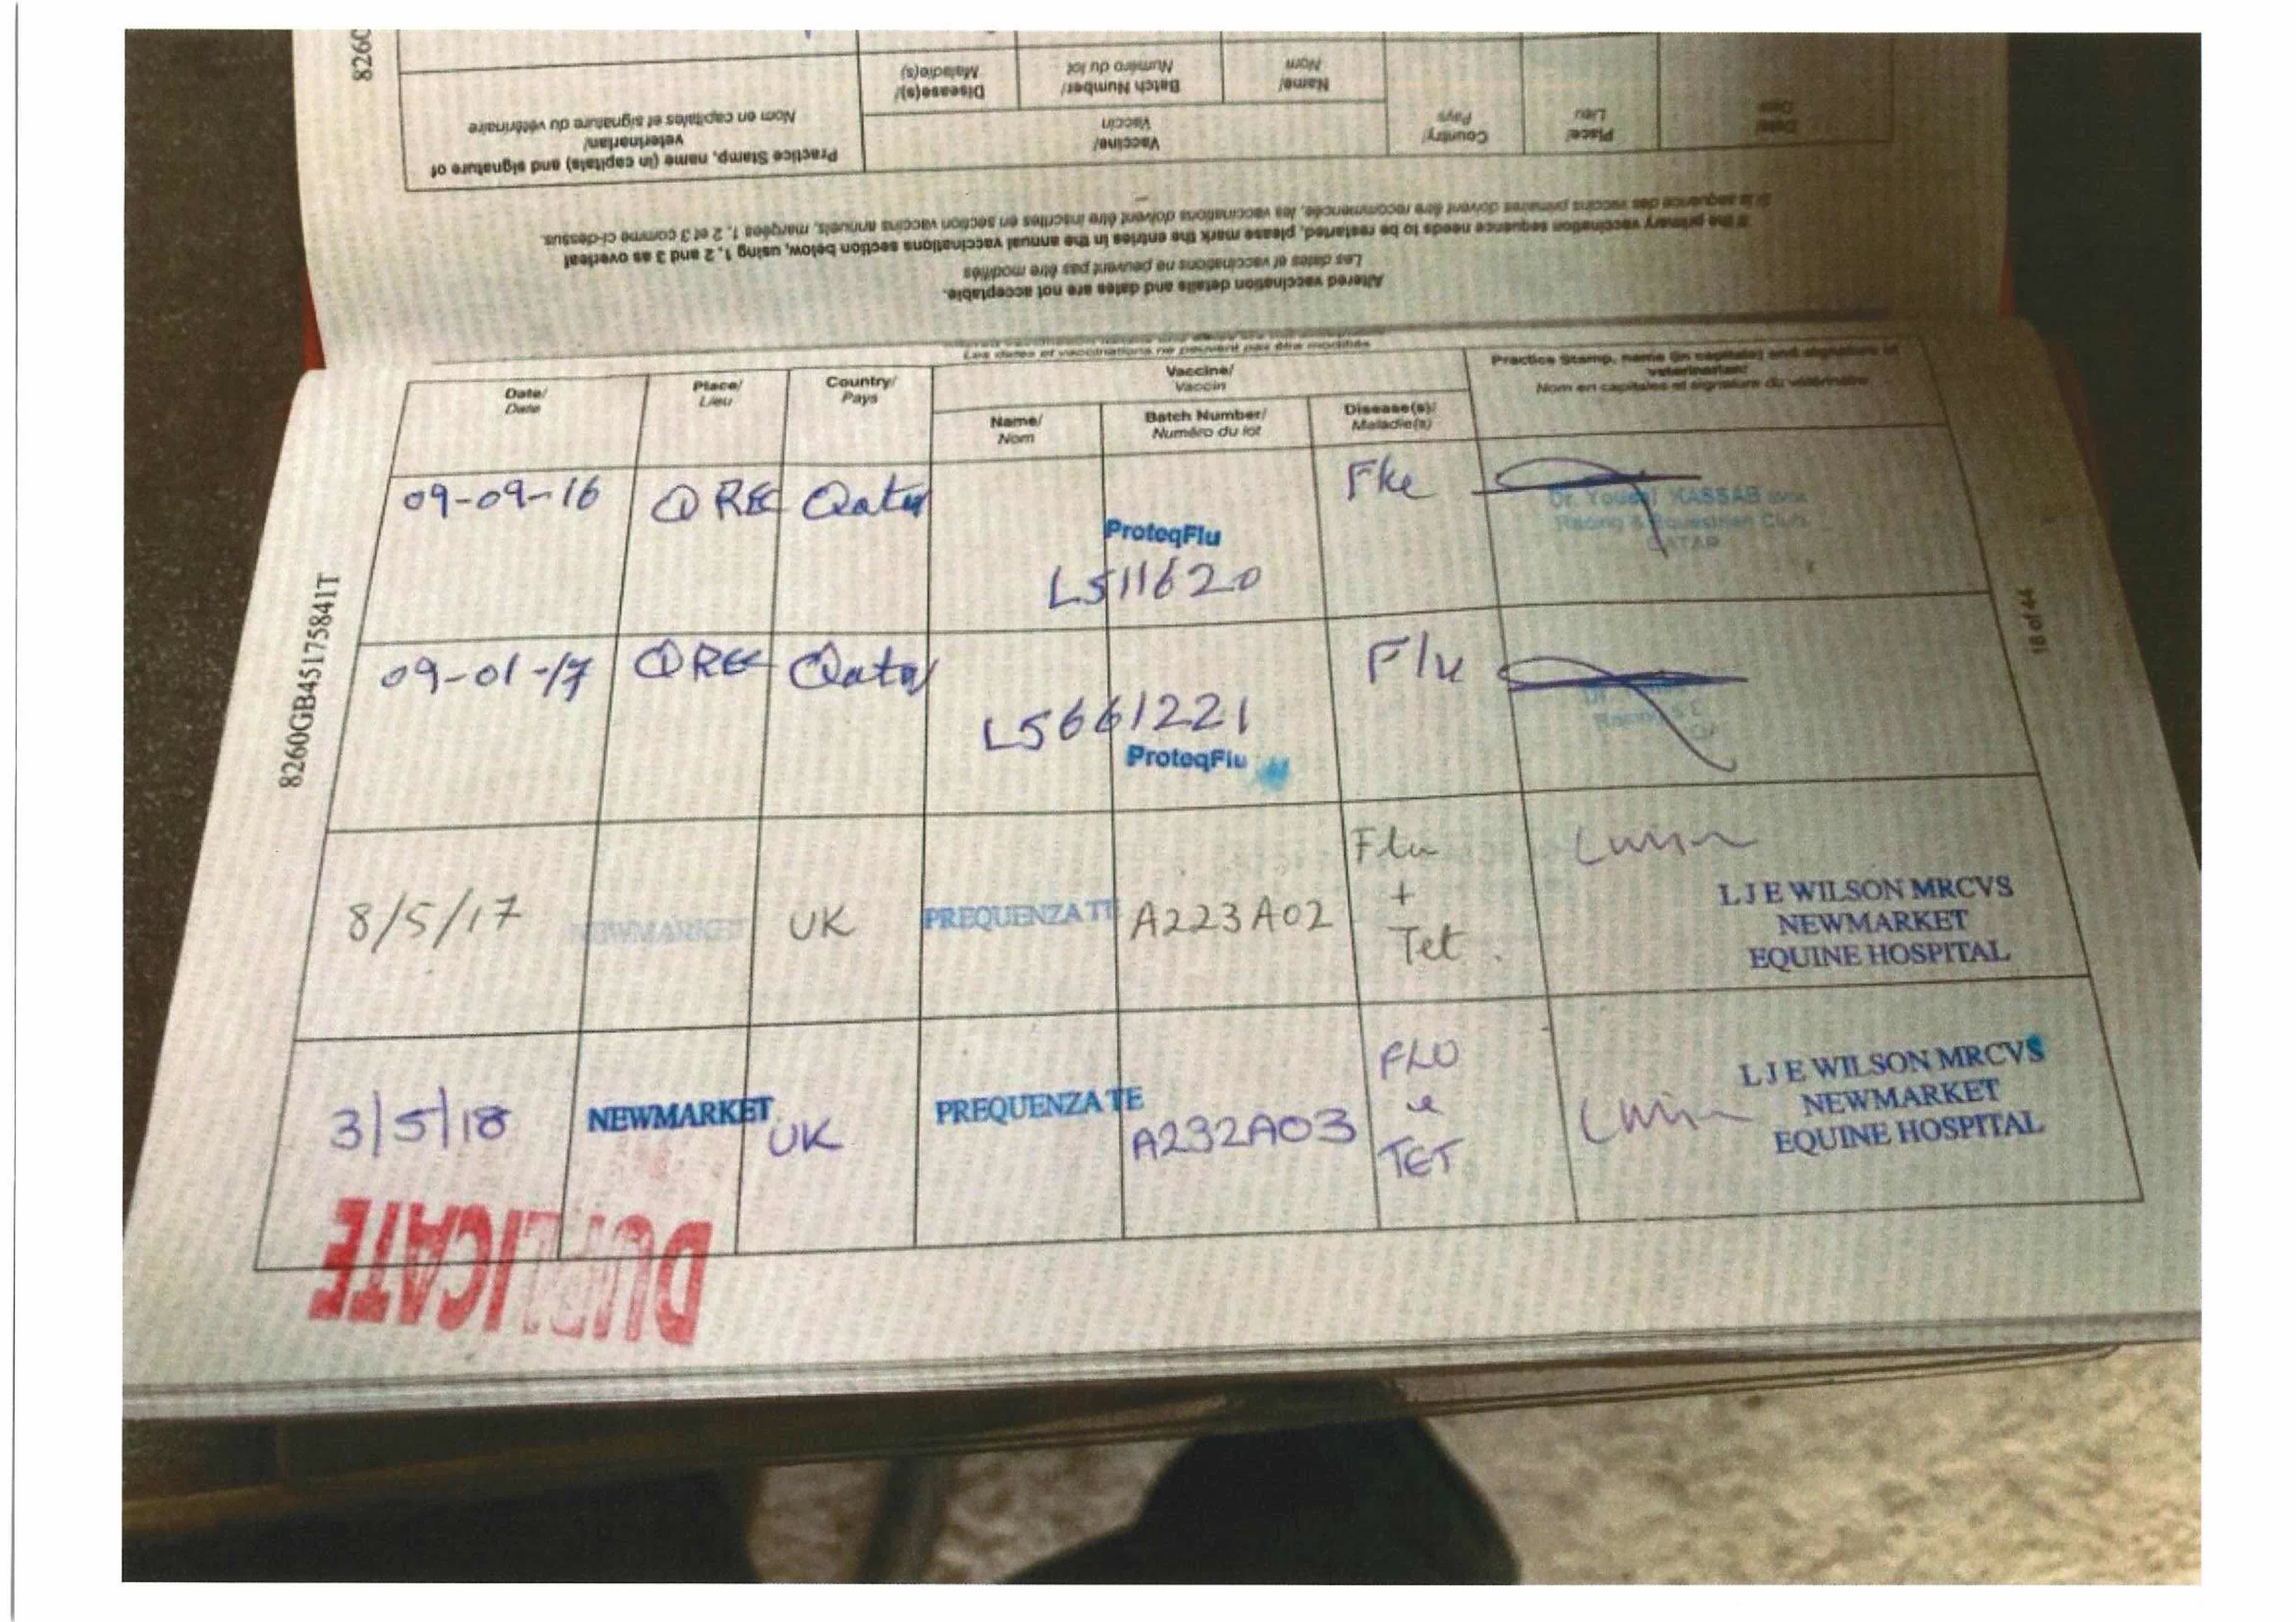 8260
Practice Stamp, name (in capitals) and signature of
veterinarian/
Nom en capitales et signature du vétérinaire
Vaccine/
Vaccin
Disease(s)/
Maladie(s)
Batch Number/
Numéro du lot
Name/
Nom
Country/
Pays
Place/
Lieu
Date/
Date
If the primary vaccination sequence needs to be restarted, please mark the entries in the annual vaccinations section below, using 1, 2 and 3 as overleaf
Si la sequence des vaccins primaires doivent être recommencée, les vaccinations doivent être inscrites en section vaccins annuels, margées 1, 2 et 3 comme ci-dessus.
Altered vaccination details and dates are not acceptable.
Les dates et vaccinations ne peuvent pas être modifiés
Les dates et vaccinations ne peuvent pas être modifiés
Date/
Date
Place/
Lieu
Country/
Pays
Vaccine/
Vaccin
Name/
Nom
Batch Number/
Numéro du lot
Disease(s)/
Maladie(s)
Practice Stamp, name (in capitals) and signature of
veterinarian/
Nom en capitales et signature du vétérinaire
09-09-16 QREC Qatar ProteqFlu L511620 Flu
KASSAB
Racing & Equestrian Club
QATAR
09-01-17 QREC Qatar L5661221 ProteqFlu Flu
8/5/17 NEWMARKET UK PREQUENZA TE A223A02 Flu + Tet
L J E WILSON MRCVS
NEWMARKET
EQUINE HOSPITAL
3/5/18 NEWMARKET UK PREQUENZA TE A232A03 FLU TET
L J E WILSON MRCVS
NEWMARKET
EQUINE HOSPITAL
DUPLICATE
8260GB45175841T
18 of 44